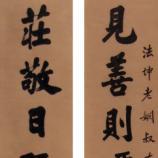 見善則
法坤老嫻叔
莊敬日